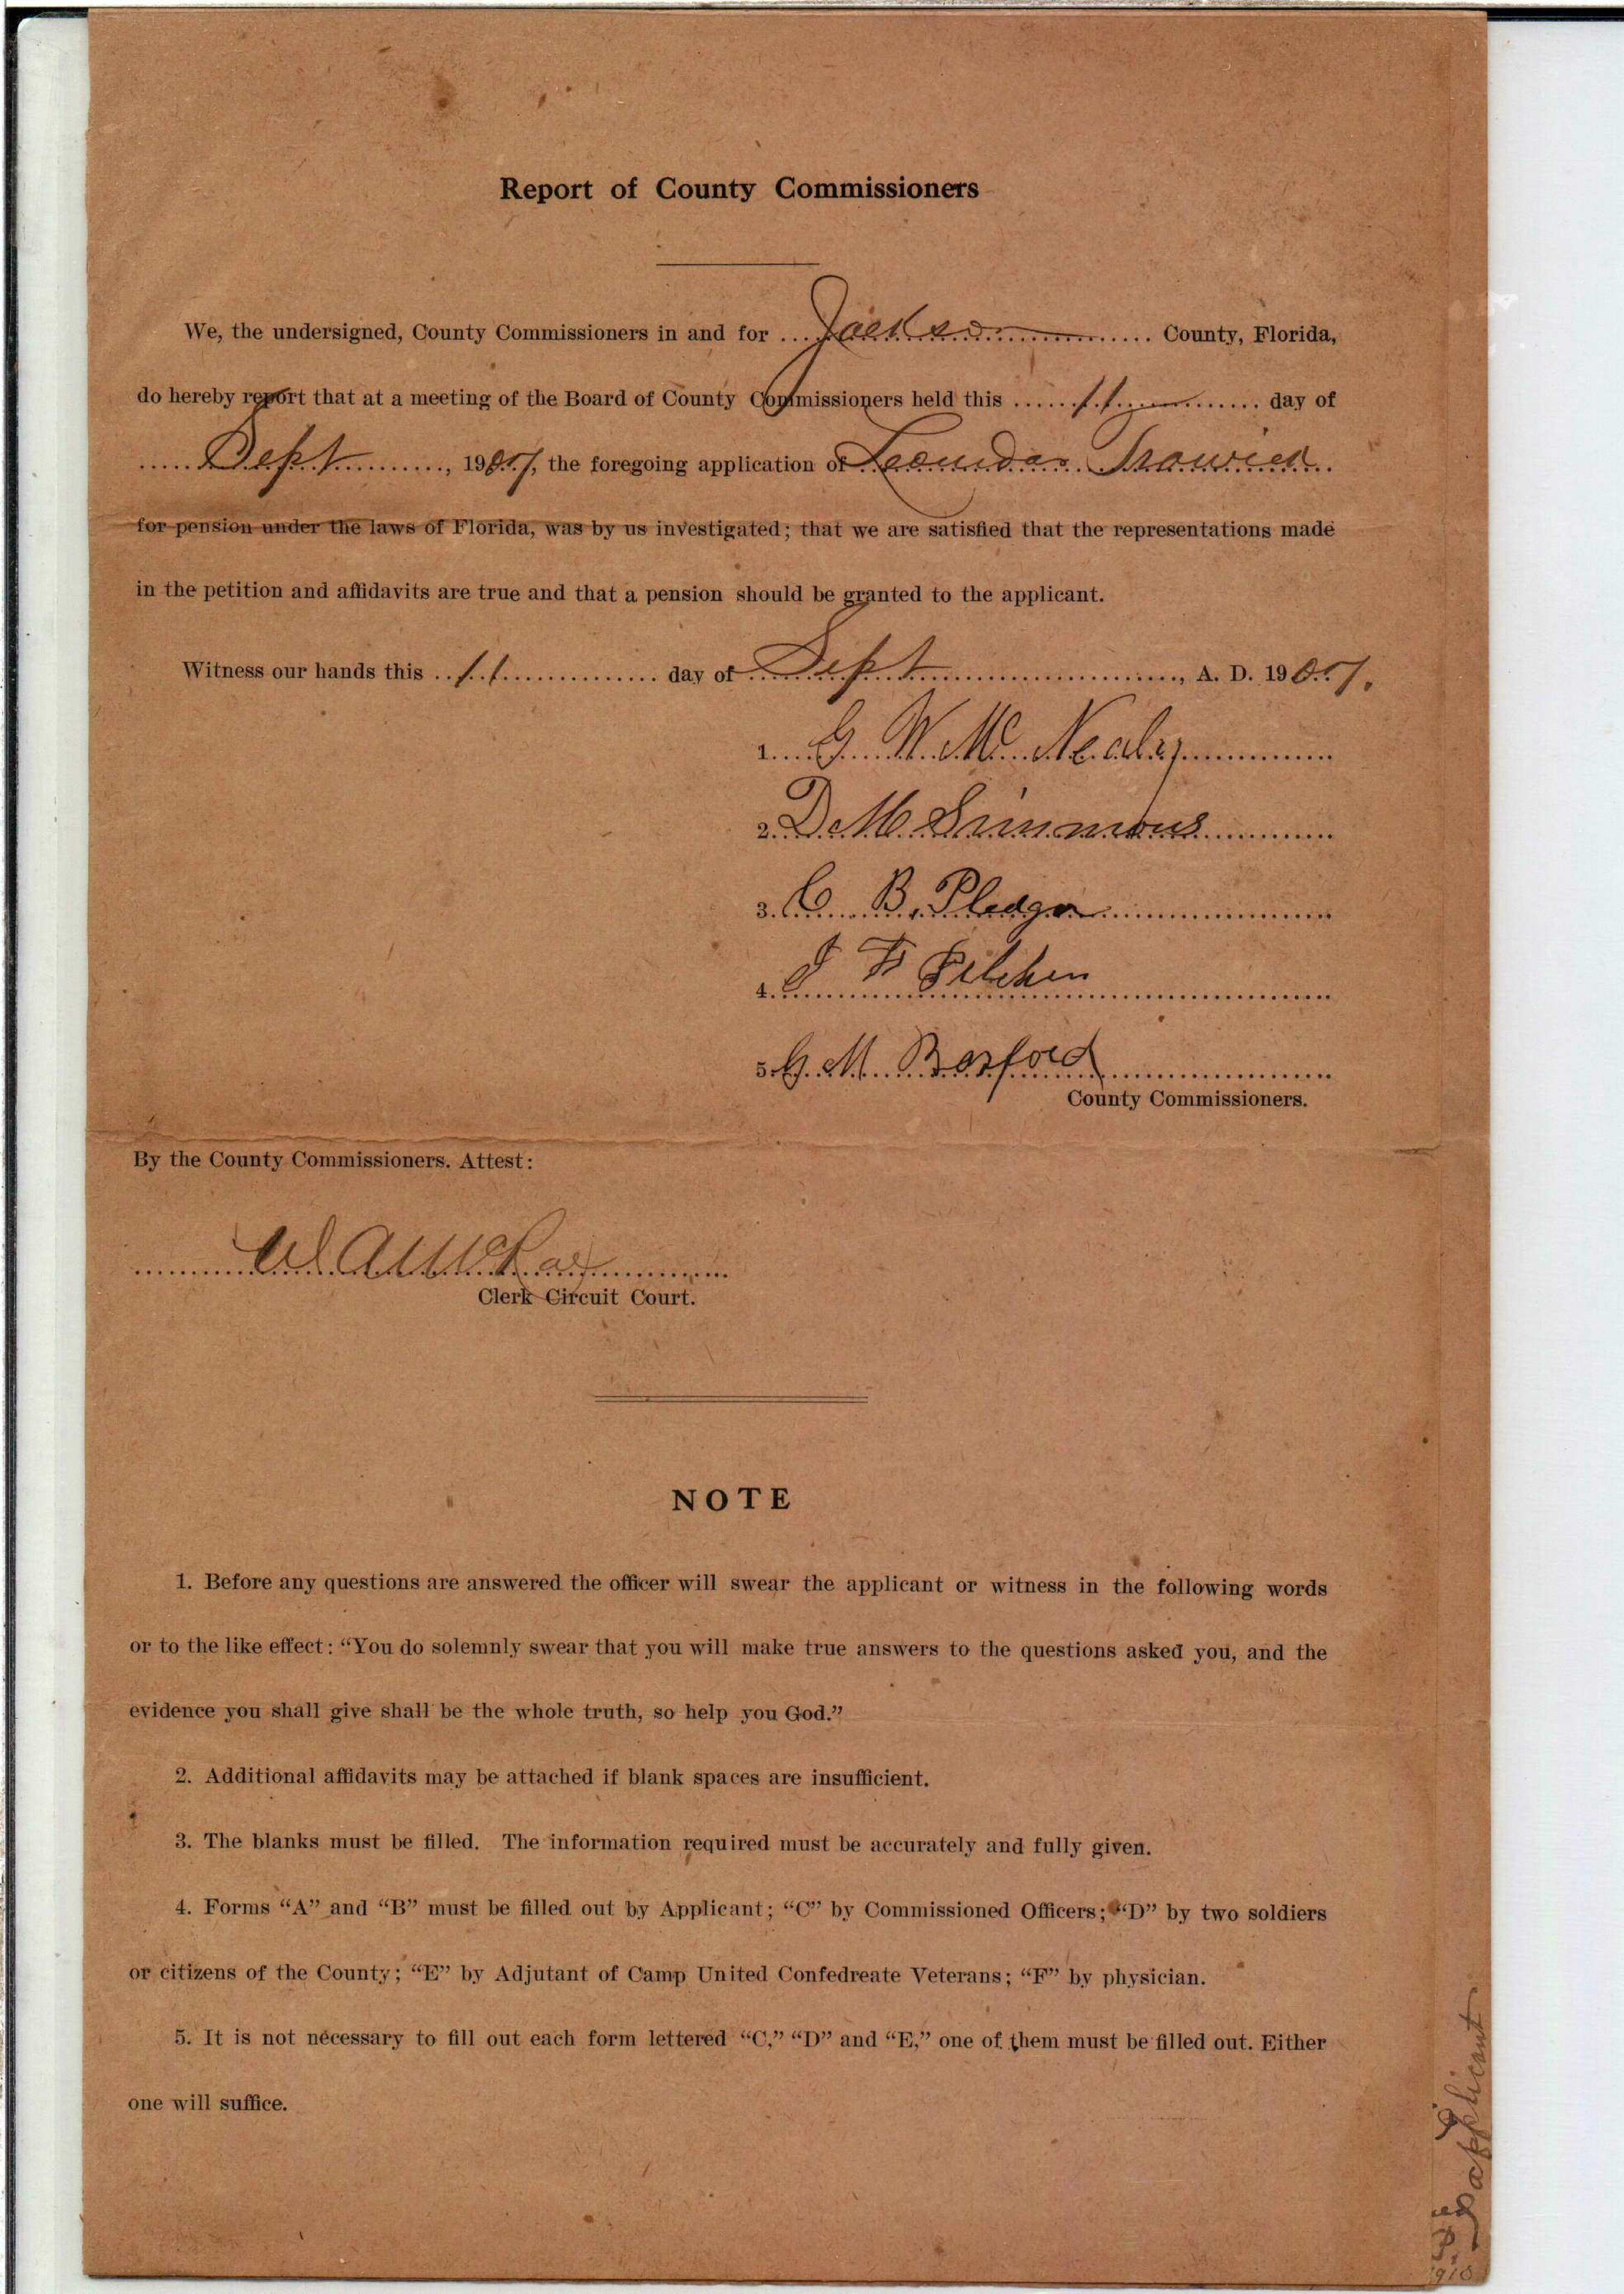 Report of County Commissioners
We, the undersigned, County Commissioners in and for Jackson County, Florida,
do hereby report that at a meeting of the Board of County Commissioners held this 11 day of
Sept, 1907, the foregoing application of Leander Trawick
for pension under the laws of Florida, was by us investigated; that we are satisfied that the representations made
in the petition and affidavits are true and that a pension should be granted to the applicant.
Witness our hands this 11 day of Sept, A. D. 1907.
1. G. W. Mc Nealy
2. D M Simmons
3. C. B. Pledger
4. J F Pilcher
5. G. M. Basford
County Commissioners.
By the County Commissioners. Attest:
Clerk Circuit Court.
NOTE
1. Before any questions are answered the officer will swear the applicant or witness in the following words
or to the like effect: “You do solemnly swear that you will make true answers to the questions asked you, and the
evidence you shall give shall be the whole truth, so help you God.”
2. Additional affidavits may be attached if blank spaces are insufficient.
3. The blanks must be filled. The information required must be accurately and fully given.
4. Forms “A” and “B” must be filled out by Applicant; “C” by Commissioned Officers; “D” by two soldiers
or citizens of the County; “E” by Adjutant of Camp United Confedreate Veterans; “F” by physician.
5. It is not necessary to fill out each form lettered “C,” “D” and “E,” one of them must be filled out. Either
one will suffice.
applicant